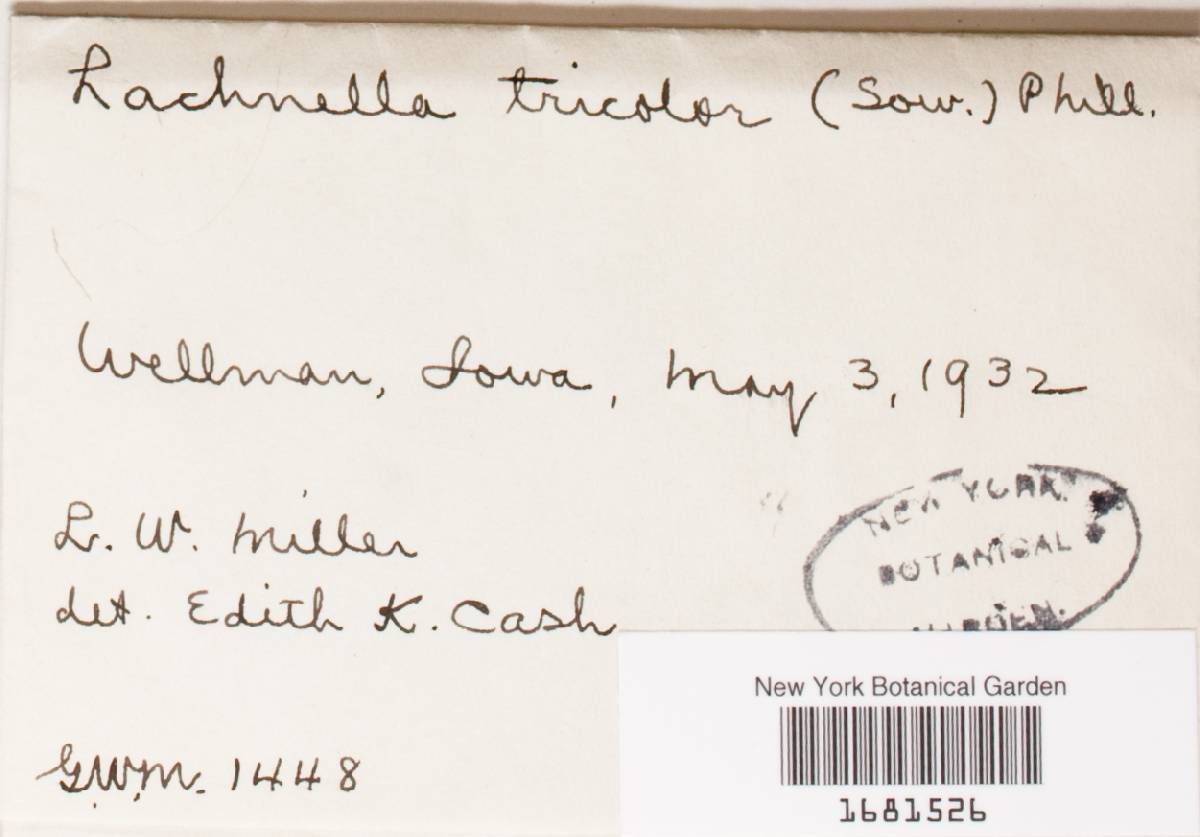 Lachnella tricolor (Sow.) Phill.
Wellman, Iowa, May 3, 1932
L. W. Miller
det. Edith K. Cash
NEW YORK
BOTANICAL
GARDEN.
G.W.M. 1448
New York Botanical Garden
1681526